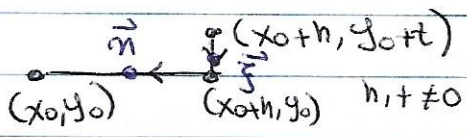 n⃗ (x₀+h, y₀+t)
ξ⃗
(x₀,y₀) (x₀+h, y₀) h,t ≠0